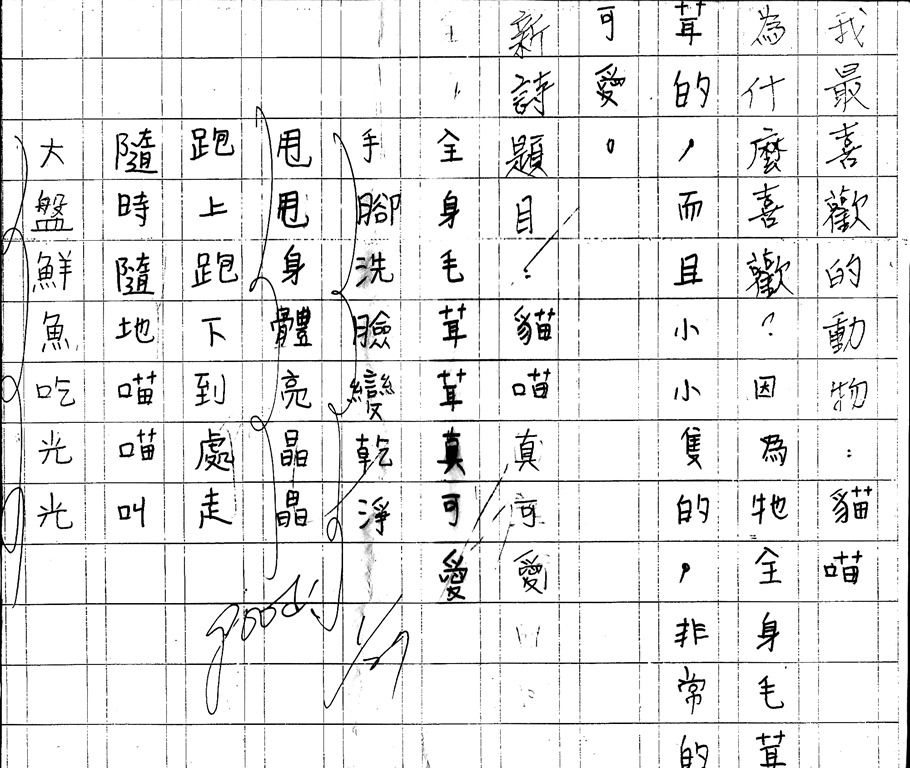 我最喜歡的動物:貓喵
為什麼喜歡?因為牠全身毛茸
茸的,而且小小隻的,非常的
可愛。
新詩題目:貓喵真可愛
全身毛茸茸真可愛
手腳洗臉變乾淨
甩甩身體亮晶晶
跑上跑下到處走
隨時隨地喵喵叫
大盤鮮魚吃光光
good!
1/27